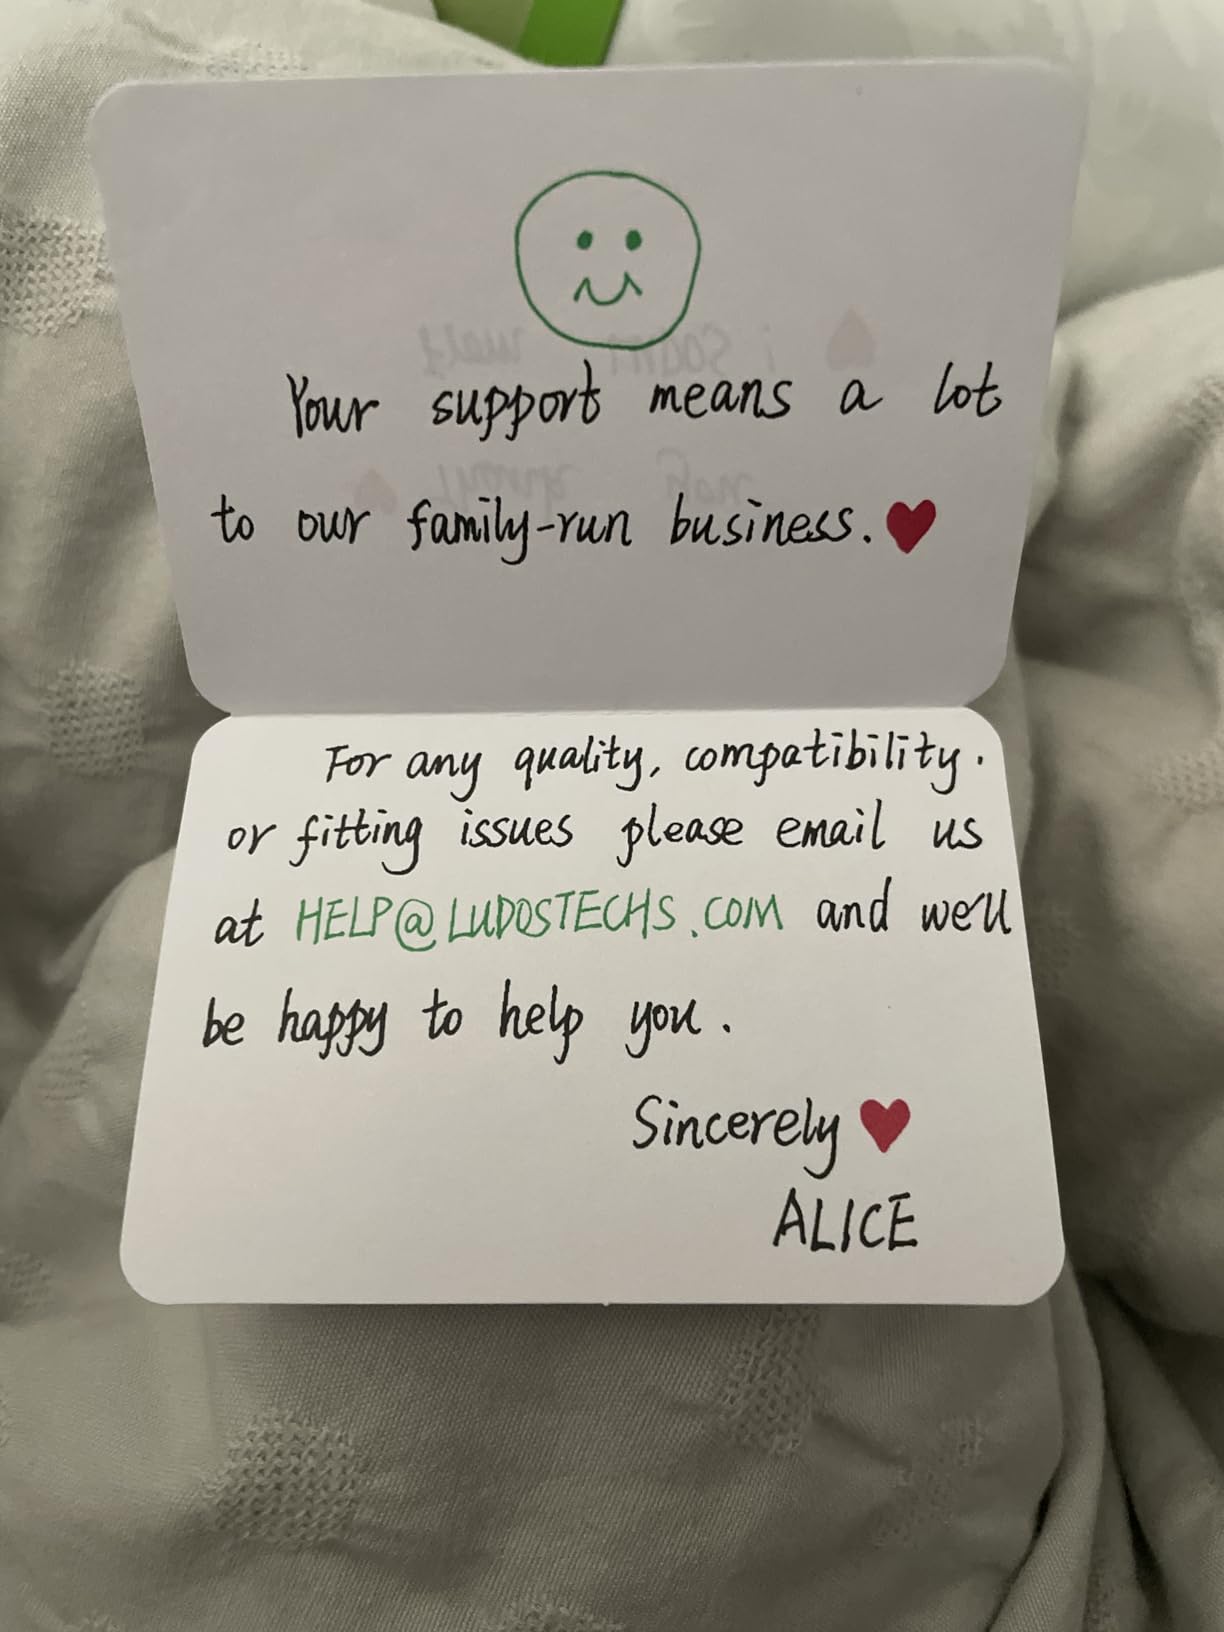 Your support means a lot
to our family-run business.
For any quality, compatibility.
or fitting issues please email us
at HELP@LUDOSTECHS.COM and we'll
be happy to help you.
Sincerely
ALICE